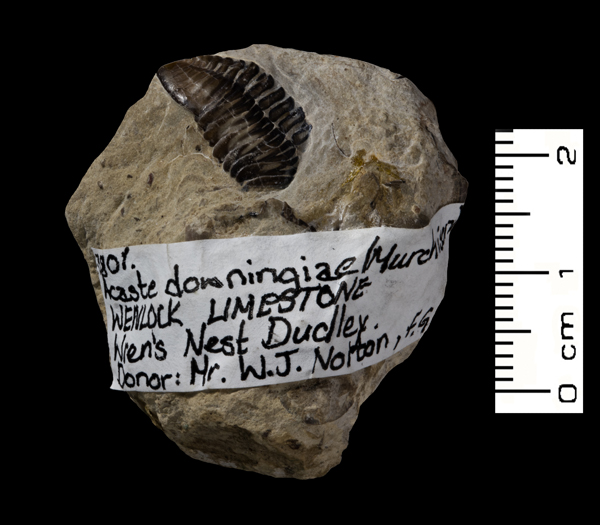 caste downingiae (Murchison
WENLOCK LIMESTONE
Wren's Nest Dudley.
Donor: Mr. W.J. Norton, F.G
2
1
0 cm